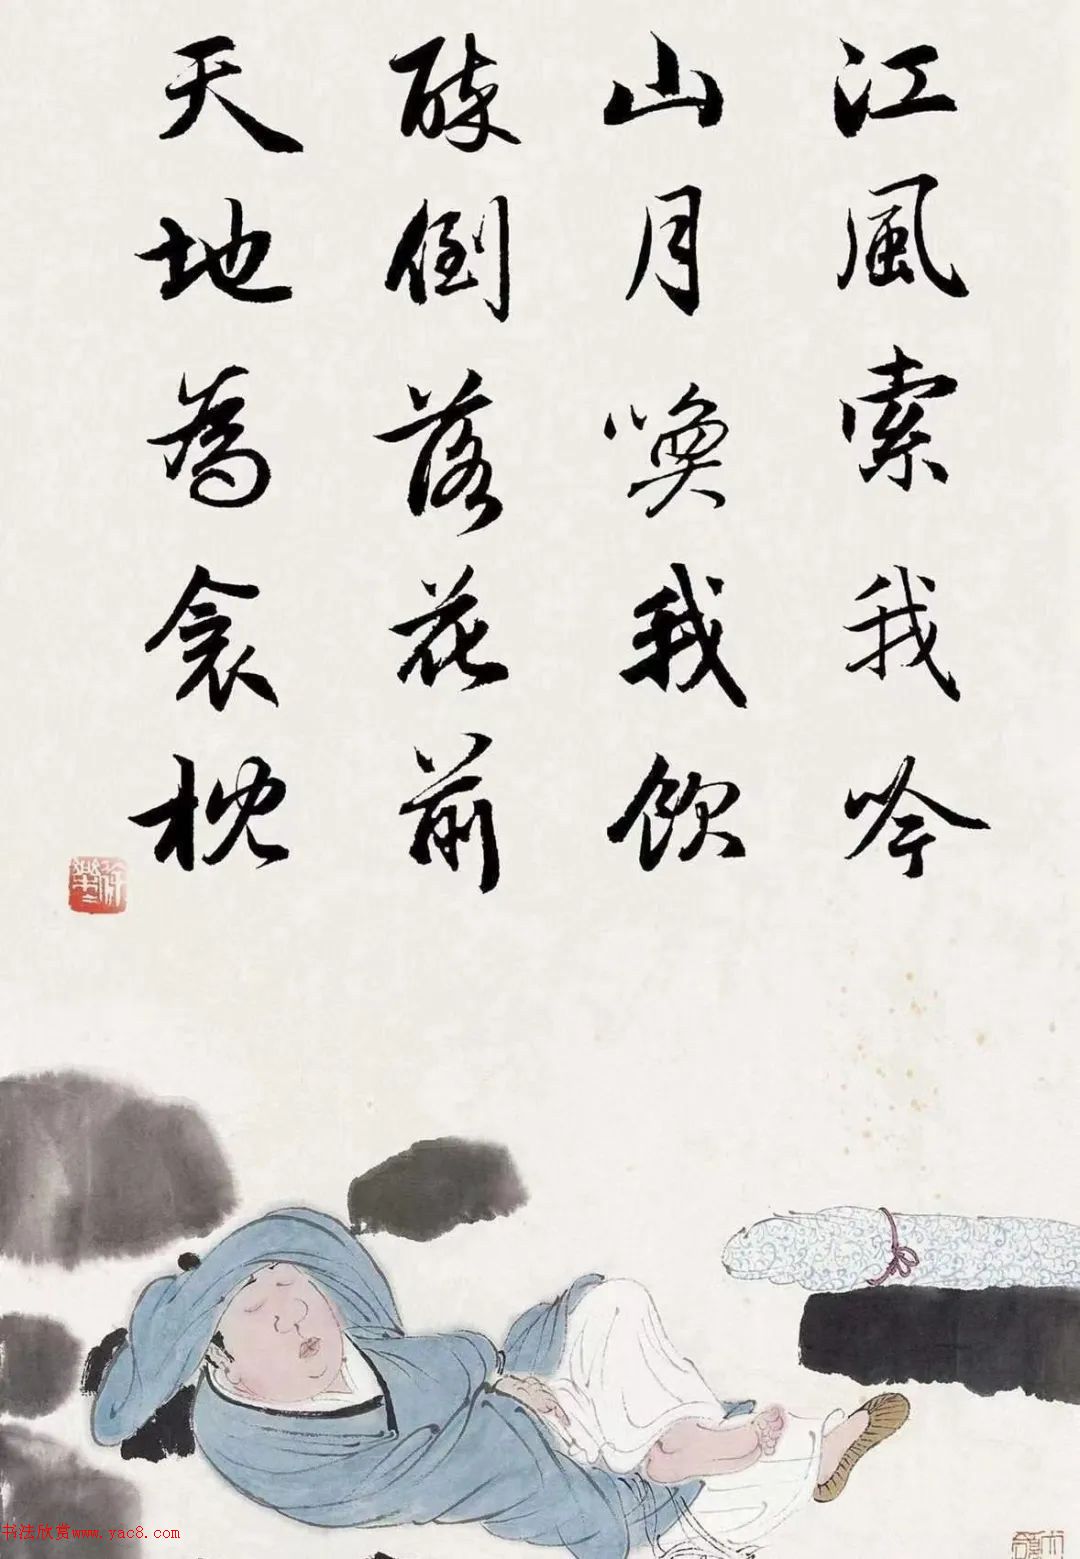 江風索我吟
山月喚我飲
醉倒落花前
天地為衾枕
书法欣赏www.yac8.com